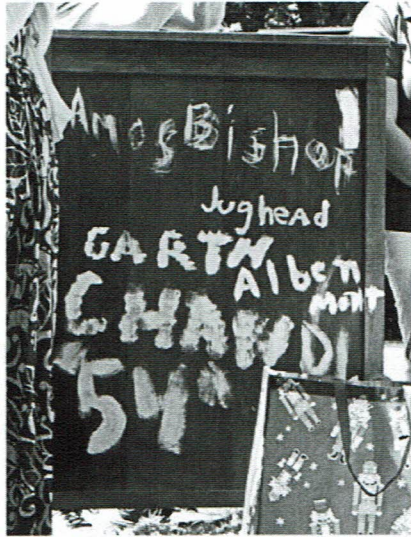 Amos Bishop
Jughead
GARTH
Alben
MONT
CHANDI
54